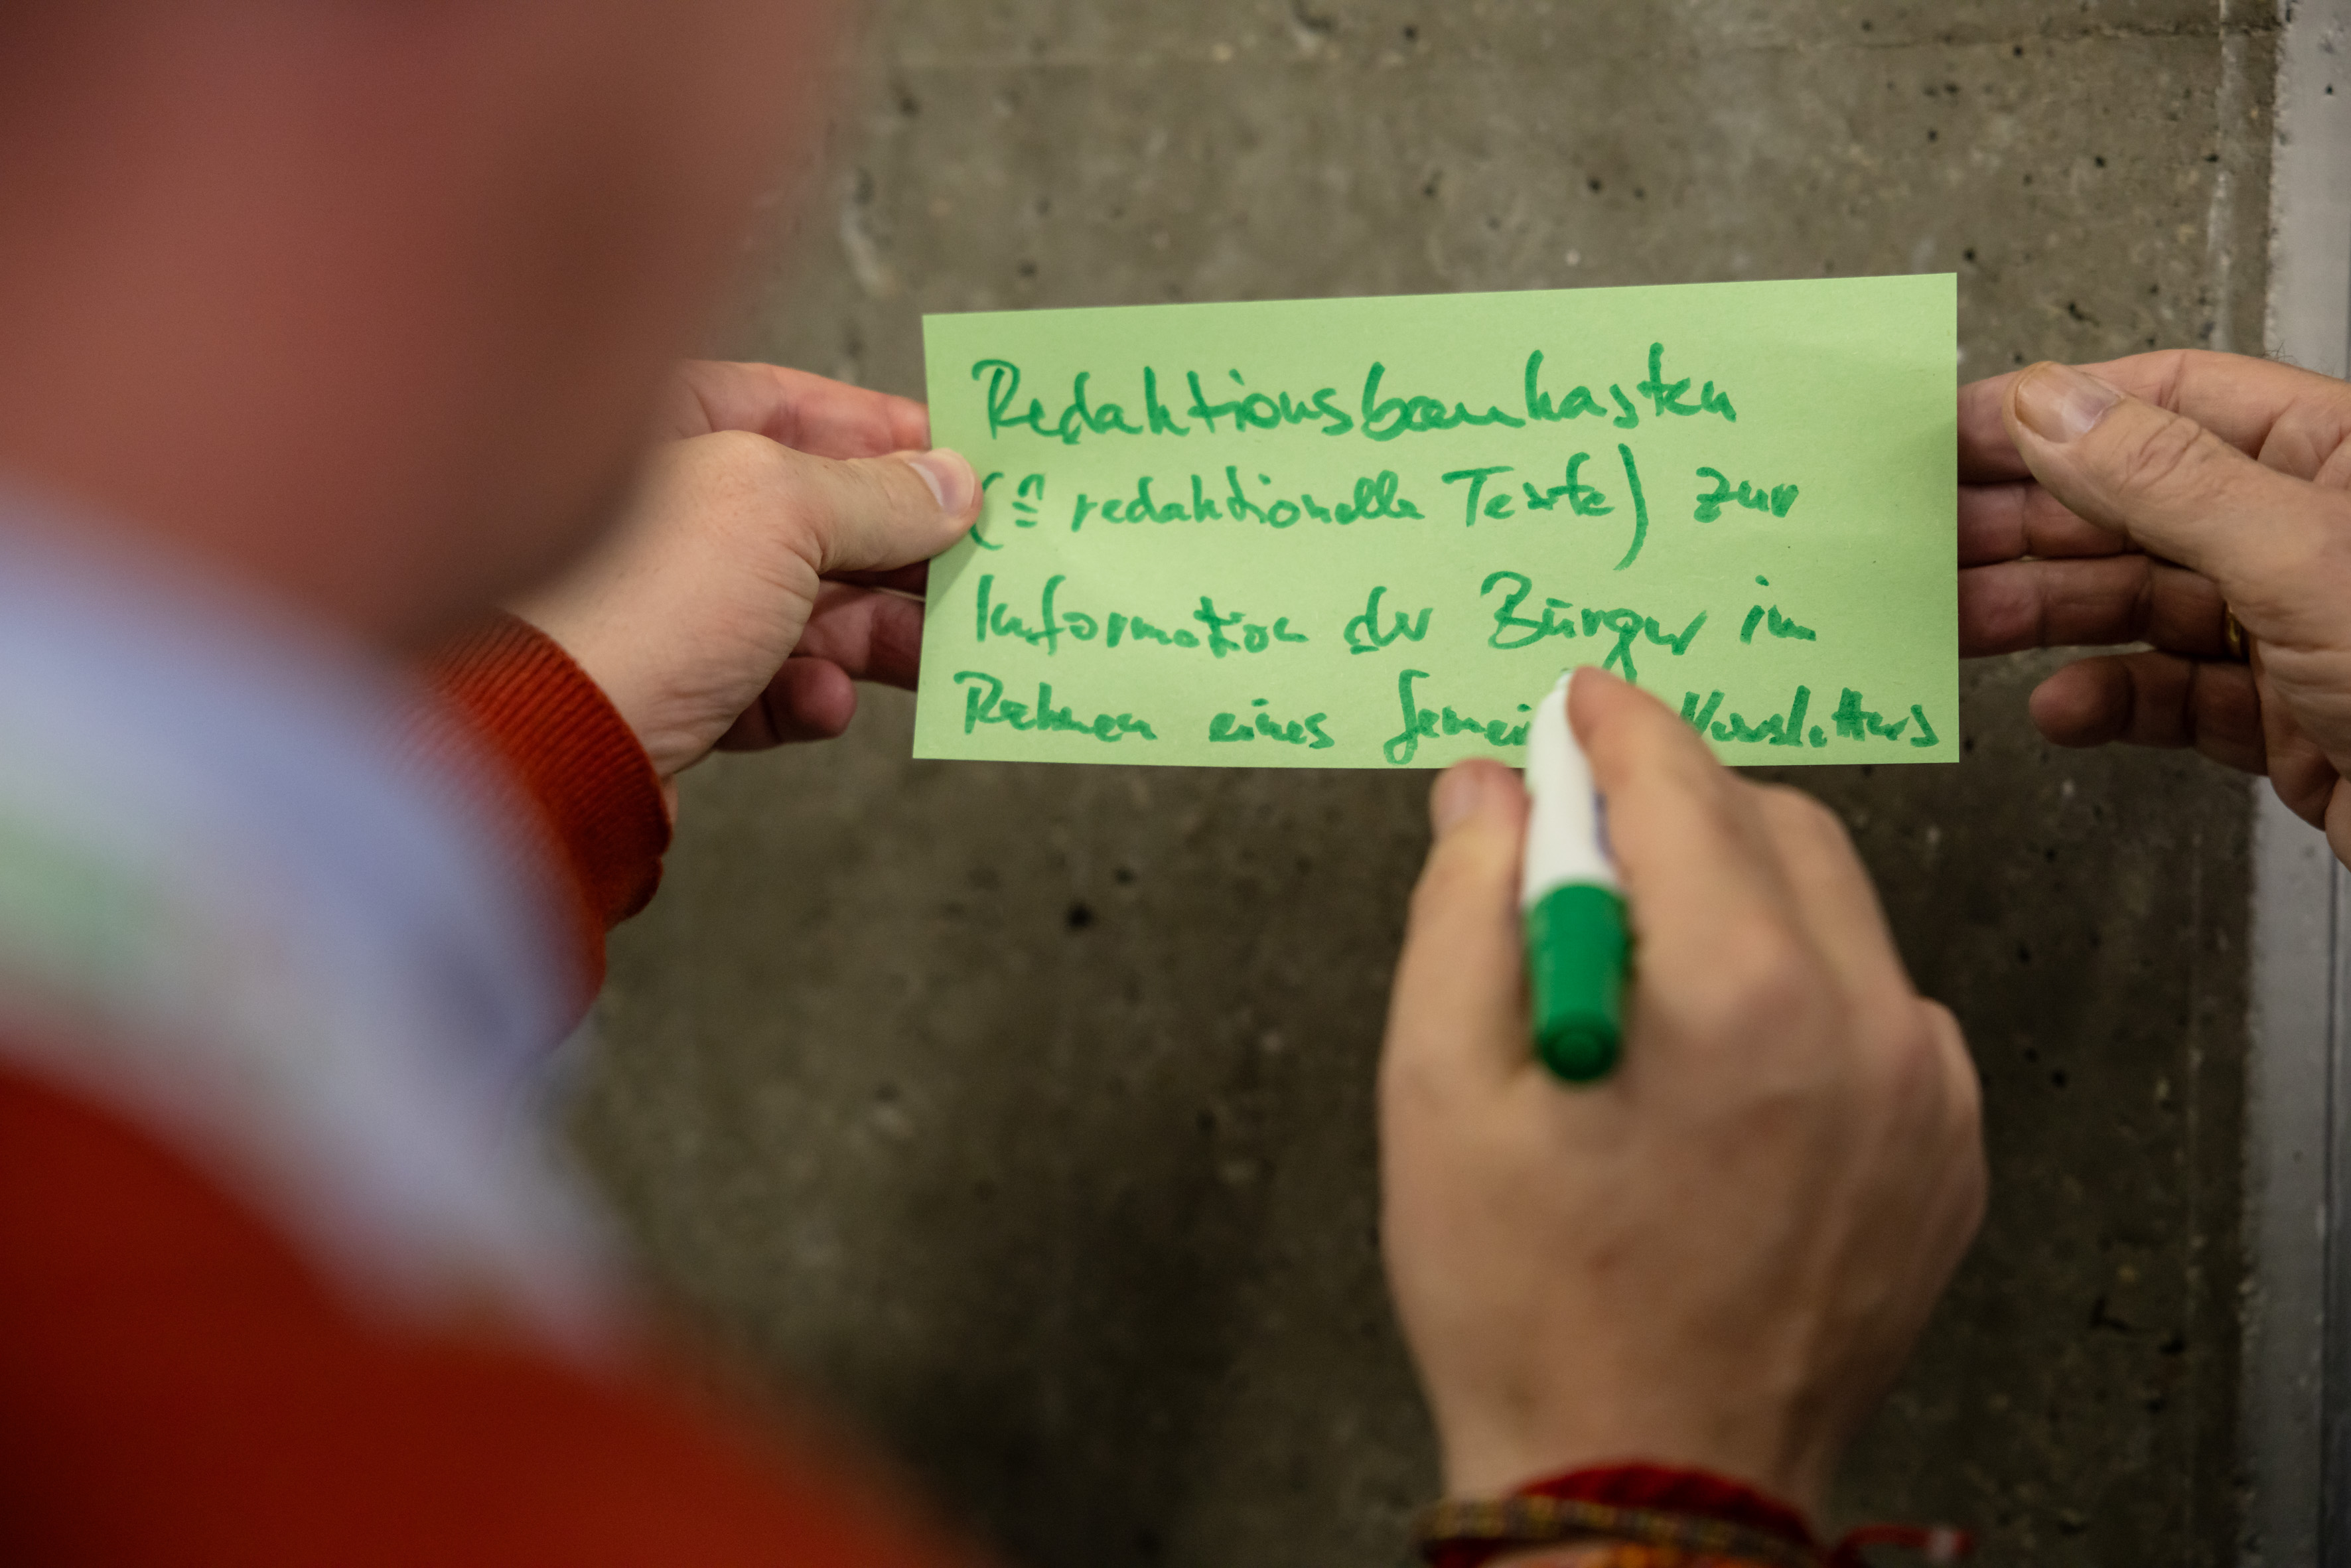 Redaktionsbaukasten
(≙ redaktionelle Texte) zur
Information der Bürger im
Rahmen eines Newsletters